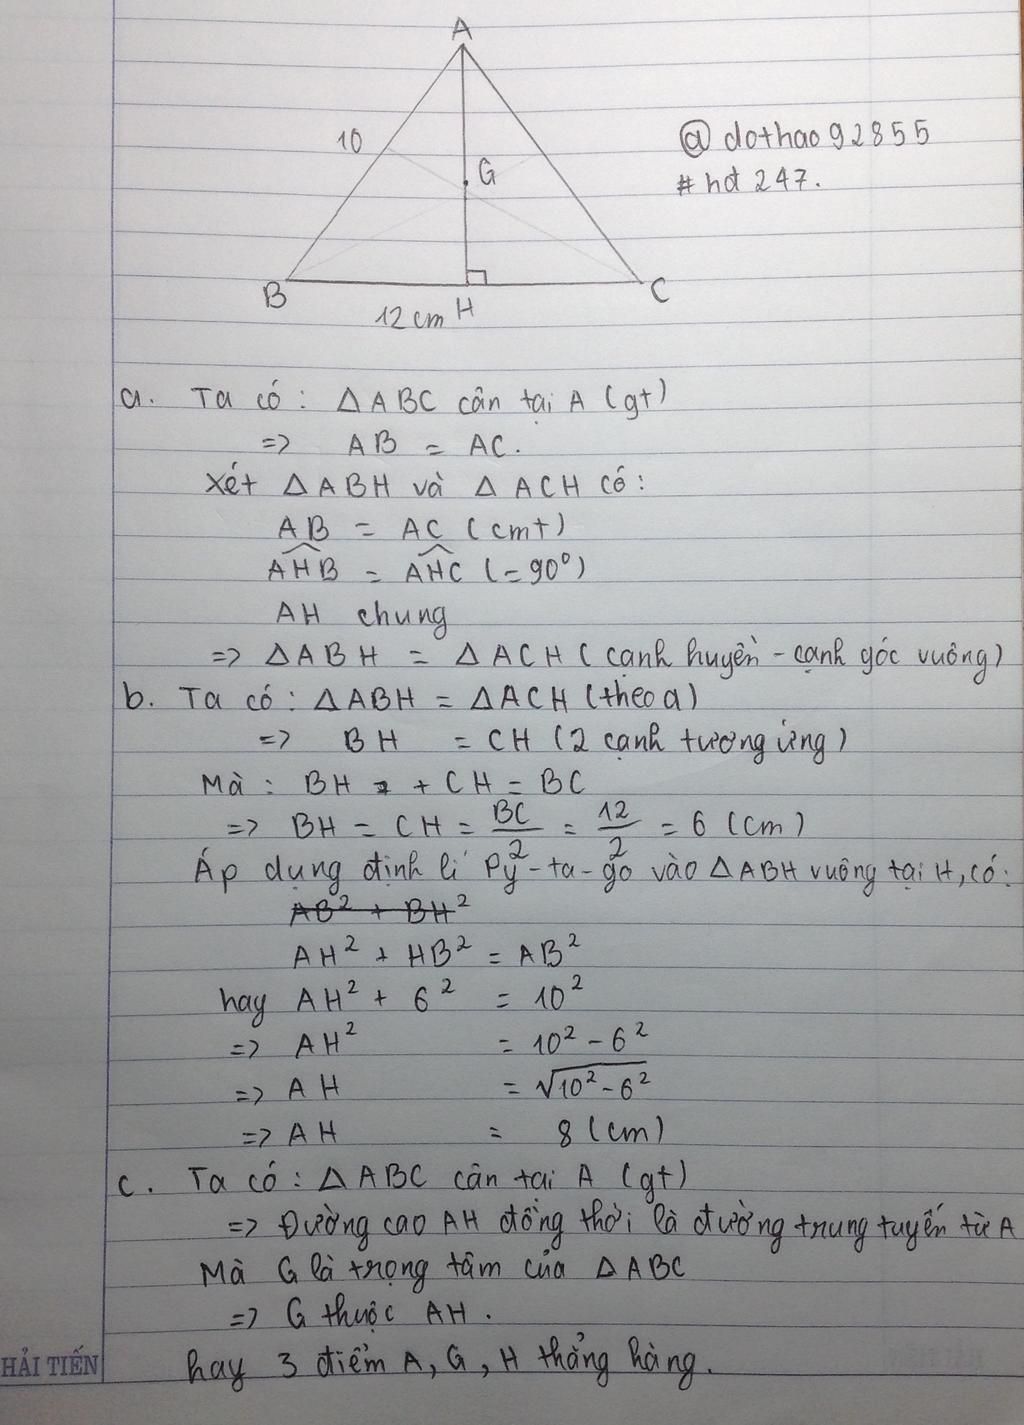 A
10
G
@dothao92855
#hđ 247.
B
C
12cm H
a. Ta có: △ABC cân tại A (gt)
=> AB = AC.
Xét △ABH và △ACH có:
AB = AC (cmt)
AHB = AHC (=90°)
AH chung
=> △ABH = △ACH (cạnh huyền - cạnh góc vuông)
b. Ta có: △ABH = △ACH (theo a)
=> BH = CH (2 cạnh tương ứng)
Mà: BH + CH = BC
=> BH = CH = BC/2 = 12/2 = 6 (cm)
Áp dụng định lí Py-ta-go vào △ABH vuông tại H, có:
AB² + BH²
AH² + HB² = AB²
hay AH² + 6² = 10²
=> AH² = 10² - 6²
=> AH = √10² - 6²
=> AH = 8 (cm)
c. Ta có: △ABC cân tại A (gt)
=> Đường cao AH đồng thời là đường trung tuyến từ A
Mà G là trọng tâm của △ABC
=> G thuộc AH.
hay 3 điểm A, G, H thẳng hàng.
HẢI TIẾN